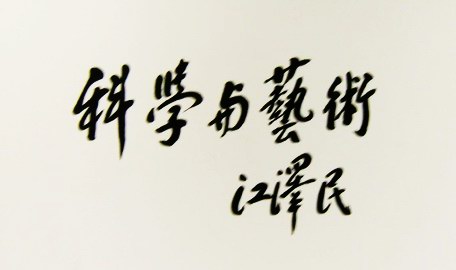 科學与藝術
江澤民